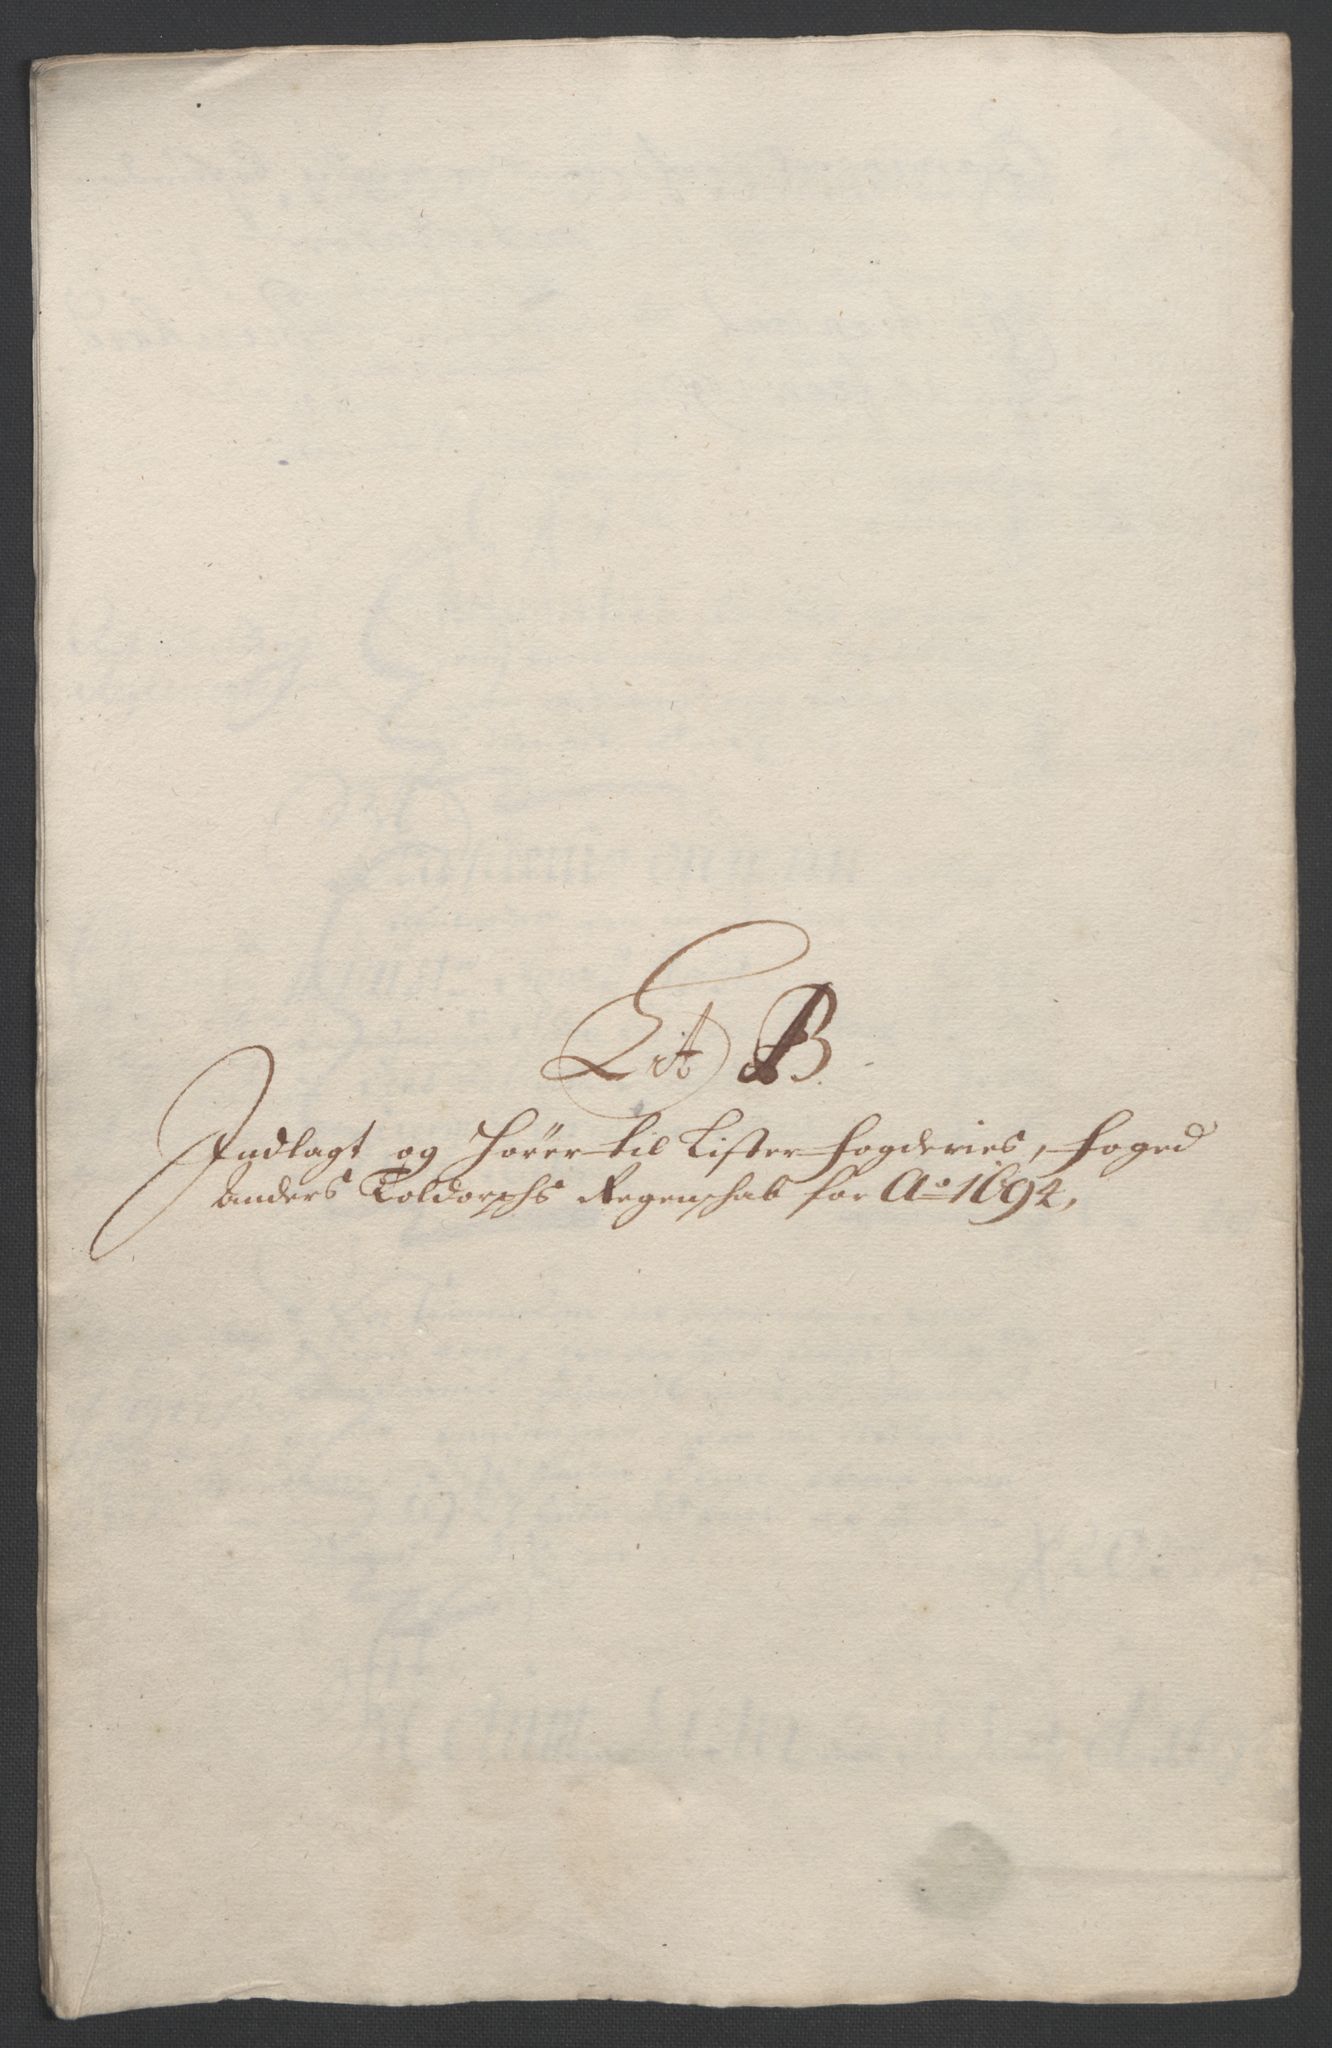 Lit B
Indlagt og hører til Lister fogderies, foged
Anders Toldorphs Regenschab for Ao 1694,